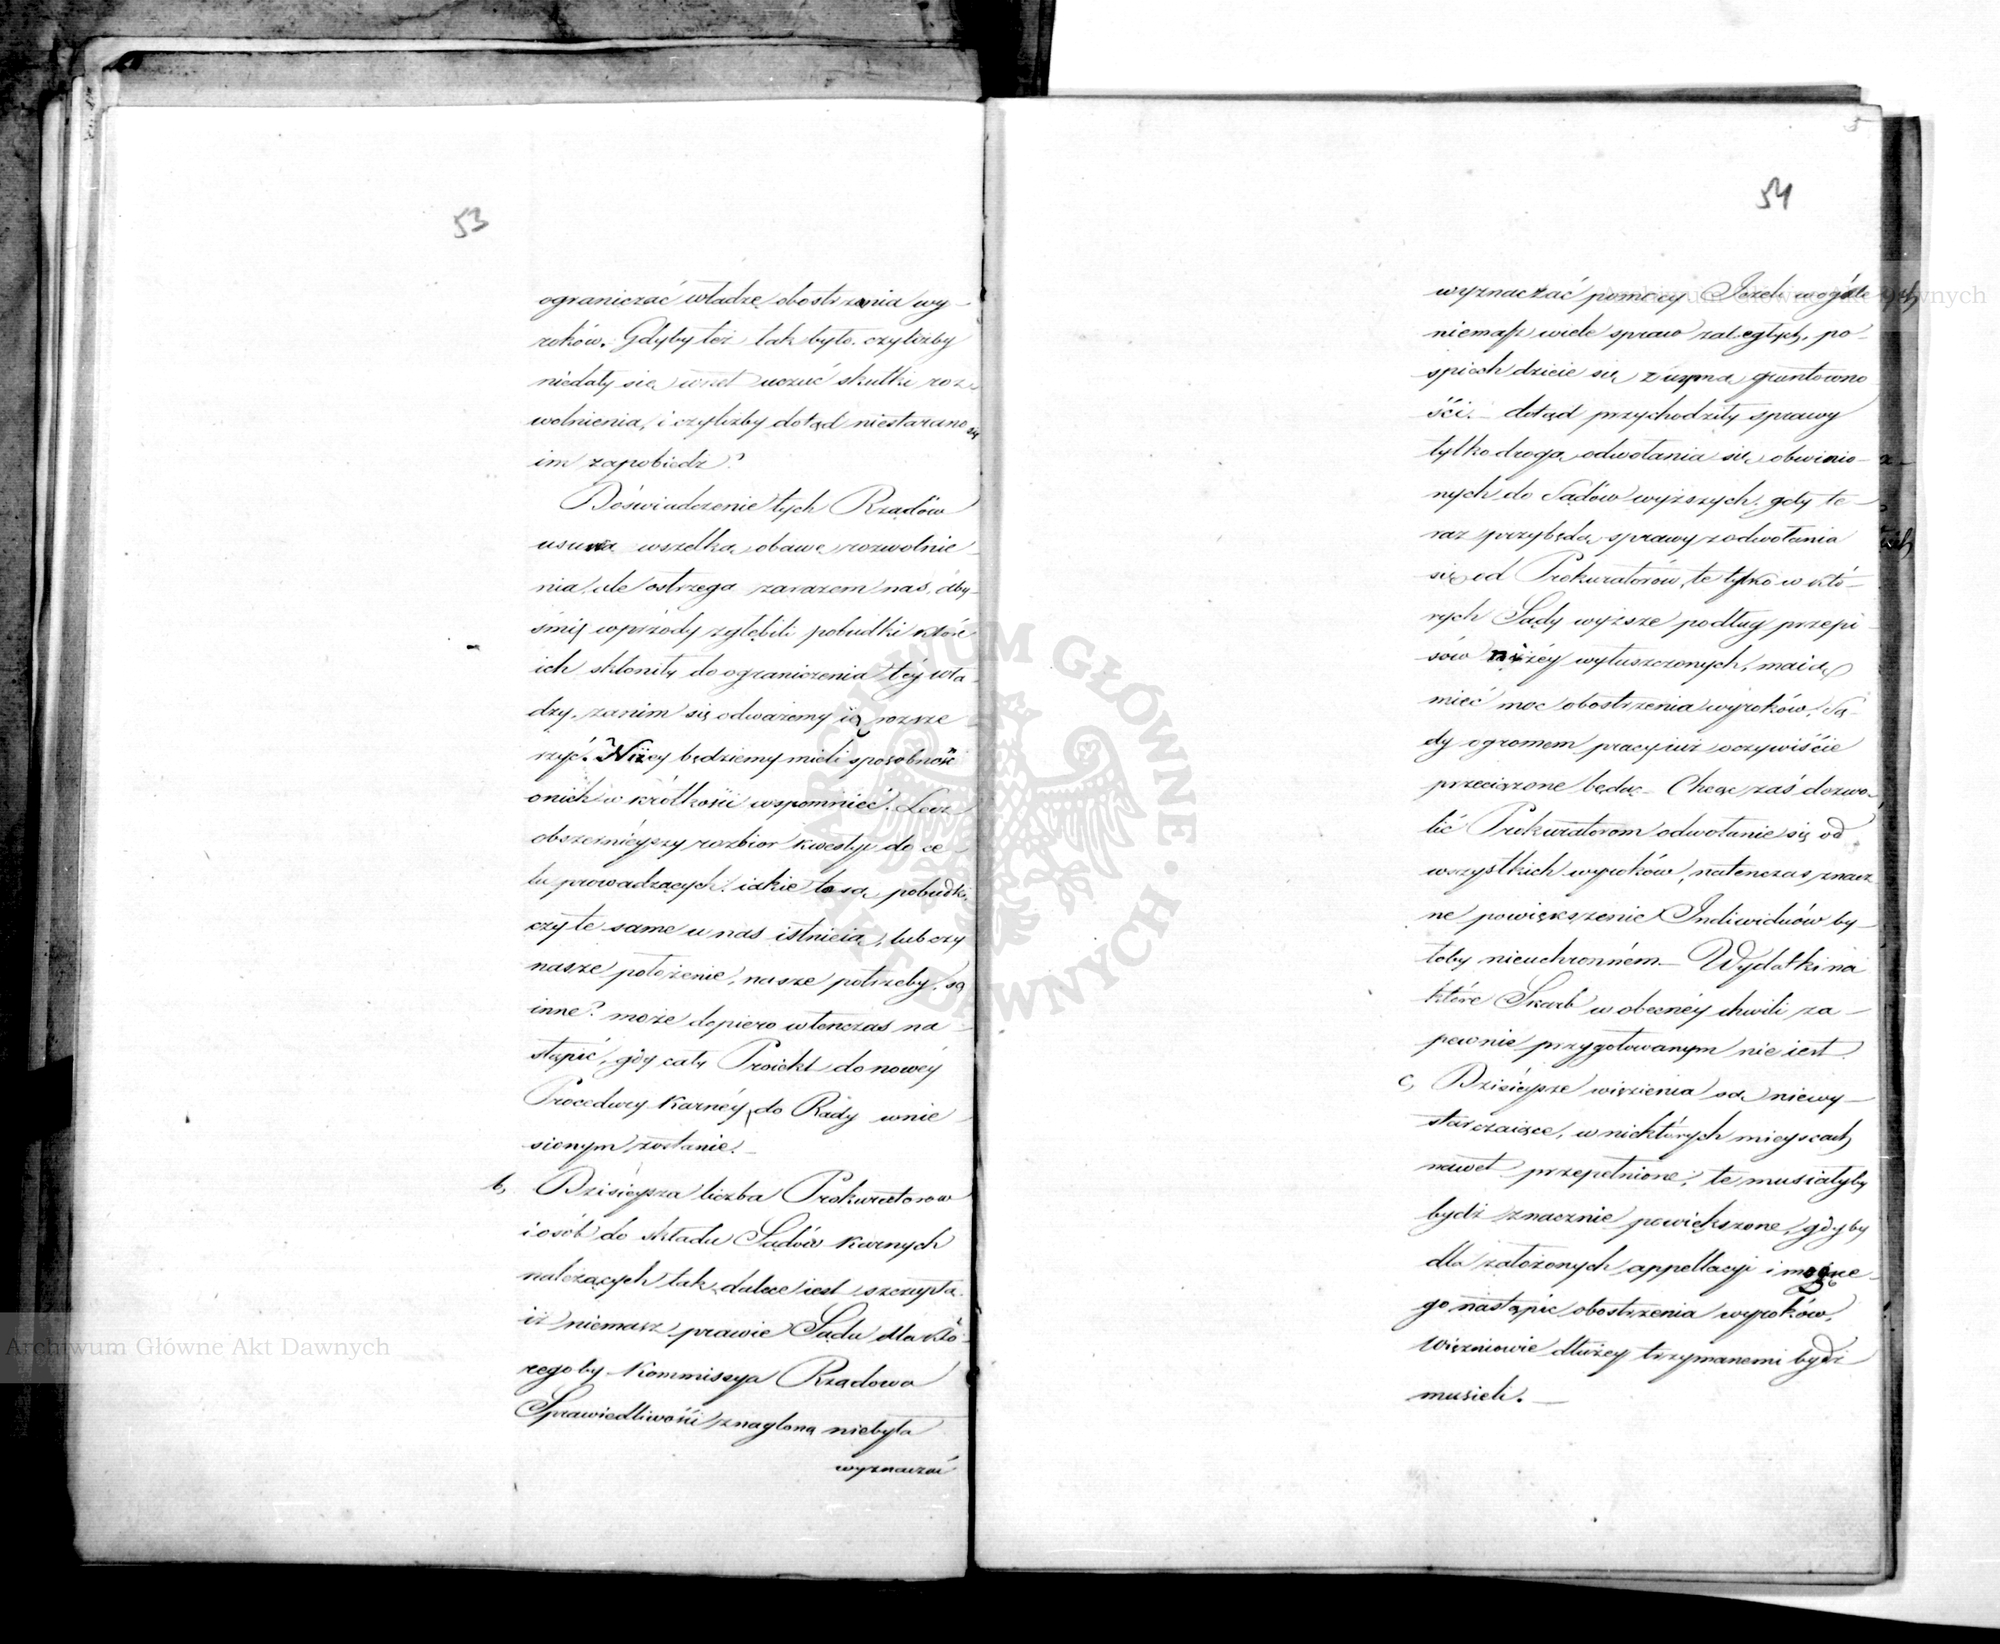 53
ograniczać władzę obostrzenia wy-
roków. Gdyby też tak było, czyliżby
niedały się wnet uczuć skutki roz-
wolnienia, i czyliżby dotąd niestarano się
im zapobiedz?
Doświadczenie tych Rządów
usuwa wszelką obawę rozwolnie-
nia, ale ostrzega zarazem nas, aby-
śmy wprzódy zgłębili pobudki które
ich skłoniły do ograniczenia téy wła-
dzy, zanim się odważemy ią rozsze-
rzyć. Niżey będziemy mieli sposobność
onich w krótkości wspomnieć. Lecz
obszernieyszy rozbior kwestyi do ce-
lu prowadzących: iakie to są pobudki,
czy te same u nas istnieią, lub czy
nasze położenie, nasze potrzeby, są
inne? może dopiero wtenczas na-
stąpić, gdy cały Proiekt do nowéy
Procedury Karnéy do Rady wnie-
sionym zostanie.
b, Dzisieysza liczba Prokuratorow
i osób do składu Sądów karnych
należących tak dalece iest szczupła
iż niemasz prawie Sądu dla któ-
regoby Kommissya Rządowa
Sprawiedliwości znagloną niebyła
wyznaczać
54
wyznaczać pomocy Jeżeli wogóle
niemasz wiele spraw zaległych, po-
spiech dzieie się z uymą gruntowno
ści. dotąd przychodziły sprawy
tylko drogą odwołania się obwinio-
nych do Sądów wyższych, gdy te-
raz przybędą sprawy z odwołania
się od Prokuratorów, te tylko w któ-
rych Sądy wyższe podług przepi-
sów niżéy wyłuszczonych, maią
mieć moc obostrzenia wyroków, Są-
dy ogromem pracy iuż oczywiście
przeciążone będąc. Chcąc zaś dozwo-
lić Prokuratorom odwołanie się od
wszystkich wyroków, natenczas znacz
ne powiększenie Individuów by-
łoby nieuchronném. Wydatki na
które Skarb w obecnéy chwili za-
pewnie przygotowanym nie iest
c, Dzisieysze więzienia są niewy-
starczaiące, w niektórych mieyscach
nawet przepełnione, te musiałyby
bydź znacznie powiększone, gdyby
dla założonych appellacyi i mogące-
go nastąpić obostrzenia wyroków,
więzniowie dłużey trzymanemi bydź
musieli.
ARCHIWUM GŁÓWNE AKT DAWNYCH
Archiwum Główne Akt Dawnych
Archiwum Główne Akt Dawnych